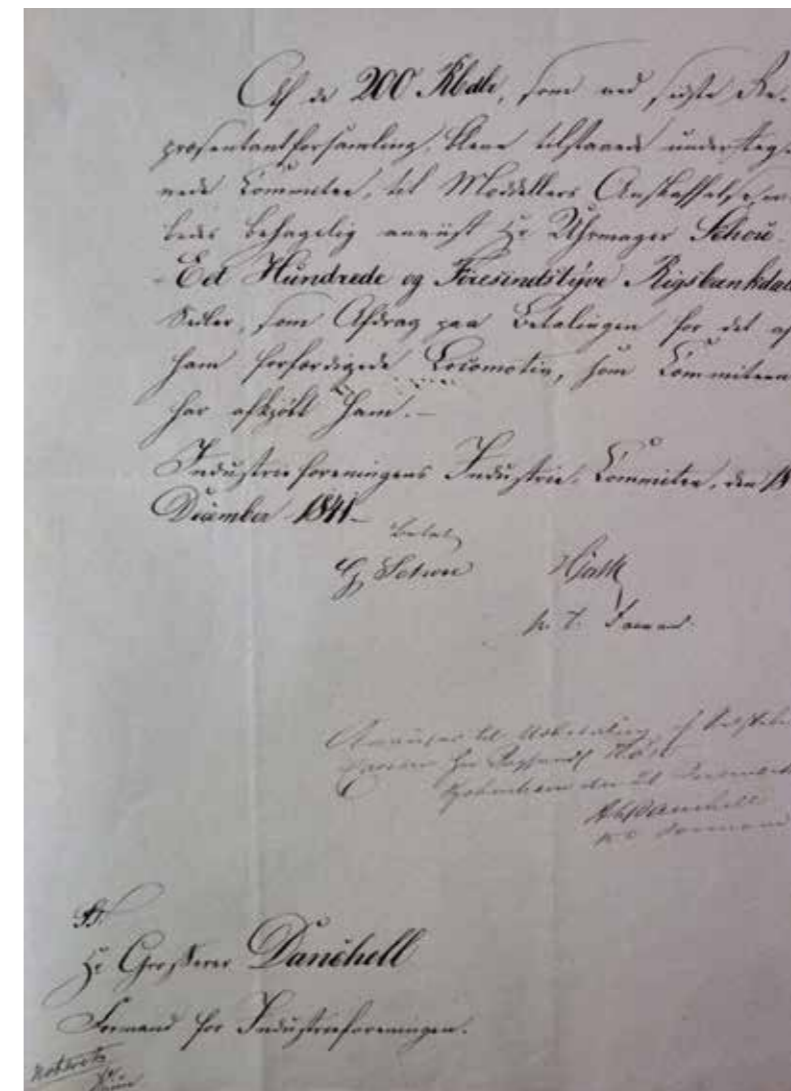 Af de 200 Rbdlr, som ved sidste Re-
præsentantforsamling, bleve tilstaaede underteg-
nede Committee, til Modellers Anskaffelse,
bedes behageligt anviist Hr Uhrmager Schou
Eet Hundrede og Fiirsindstÿve Rigsbankdal
Sedler, som Afdrag paa Betalingen for det af
ham forfærdigede Locomotiv, som Committeen
har afkjøbt ham.—
Industrieforeningens Industrie-Committee, den 18
December 1841—
betalt
G. Schou Hjorth
p. t. Formand.
Anvises til Udbetaling af
Kjøbenhavn
Danchell
Formand
Til
Hr Grosserer Danchell
Formand for Industrieforeningen.